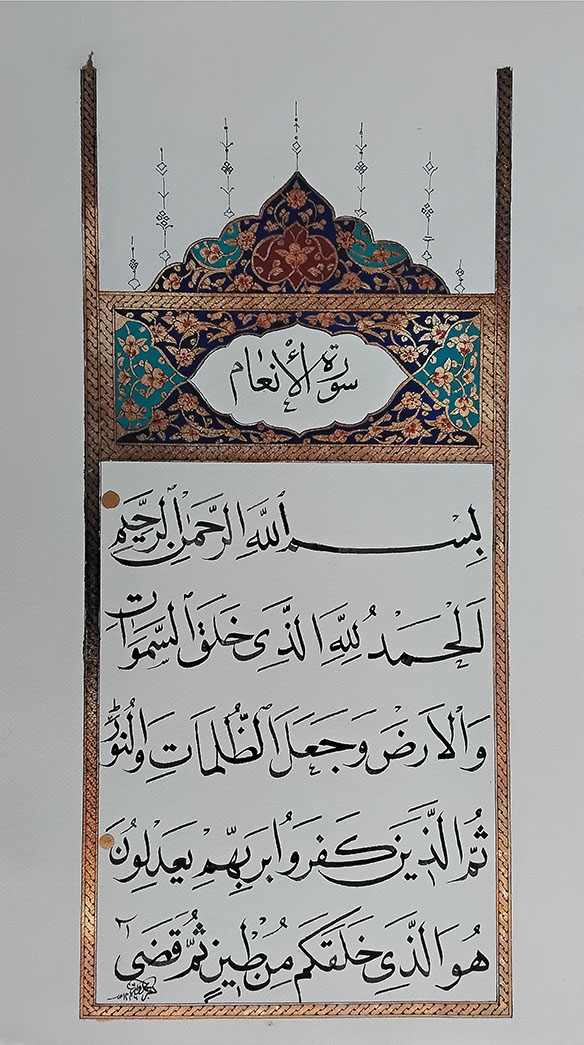 سورة الأنعام
بِسْمِ اللَّهِ الرَّحْمٰنِ الرَّحِيمِ
اَلْحَمْدُ لِلَّهِ الَّذِى خَلَقَ السَّمَوَاتِ
وَالْاَرْضَ وَجَعَلَ الظُّلُمَاتِ وَالنُّورَ
ثُمَّ الَّذِينَ كَفَرُوا بِرَبِّهِمْ يَعْدِلُونَ
هُوَ الَّذِى خَلَقَكُمْ مِنْ طِينٍ ثُمَّ قَضَى